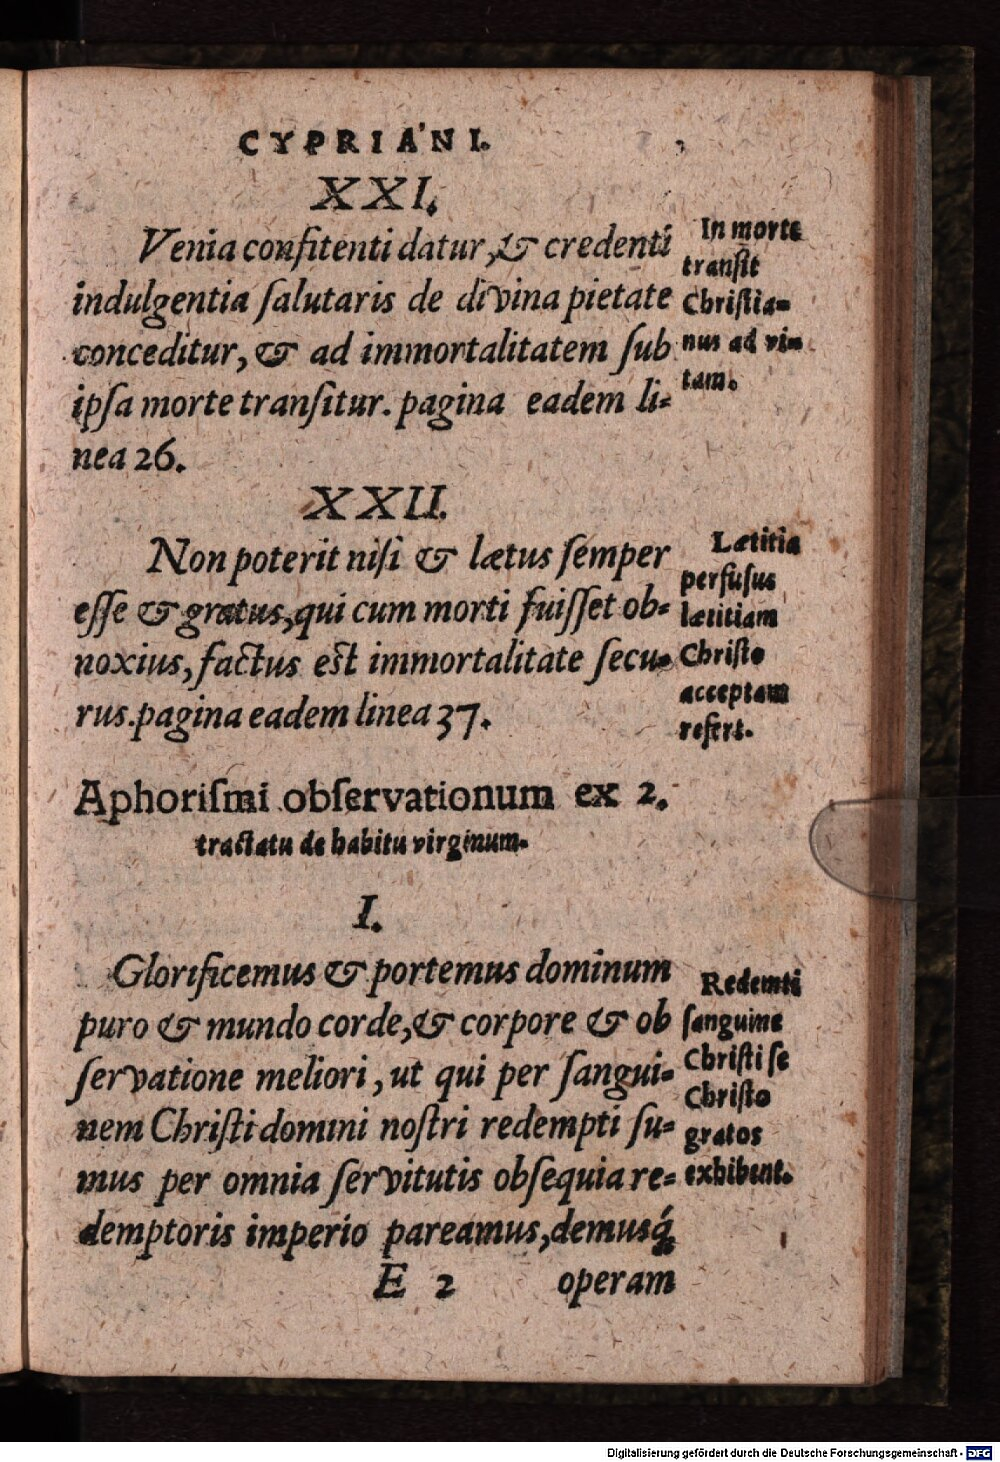 CYPRIANI.
XXI.
Venia confitenti datur, & credenti
indulgentia ſalutaris de divina pietate
conceditur, & ad immortalitatem ſub
ipſa morte tranſitur. pagina eadem li-
nea 26.
In morte
tranſit
Chriſtia-
nus ad vi-
tam.
XXII.
Non poterit niſi & lætus ſemper
eſſe & gratus, qui cum morti fuiſſet ob-
noxius, factus est immortalitate ſecu-
rus. pagina eadem linea 37.
Lætitia
perfuſus
lætitiam
Chriſto
acceptam
refert.
Aphoriſmi obſervationum ex 2.
tractatu de habitu virginum.
I.
Glorificemus & portemus dominum
puro & mundo corde, & corpore & ob
ſervatione meliori, ut qui per ſangui-
nem Chriſti domini noſtri redempti ſu-
mus per omnia ſervitutis obſequia re-
demptoris imperio pareamus, demusq́
Redemti
ſanguine
Chriſti ſe
Chriſto
gratos
exhibent.
E 2 operam
Digitalisierung gefördert durch die Deutsche Forschungsgemeinschaft - DFG